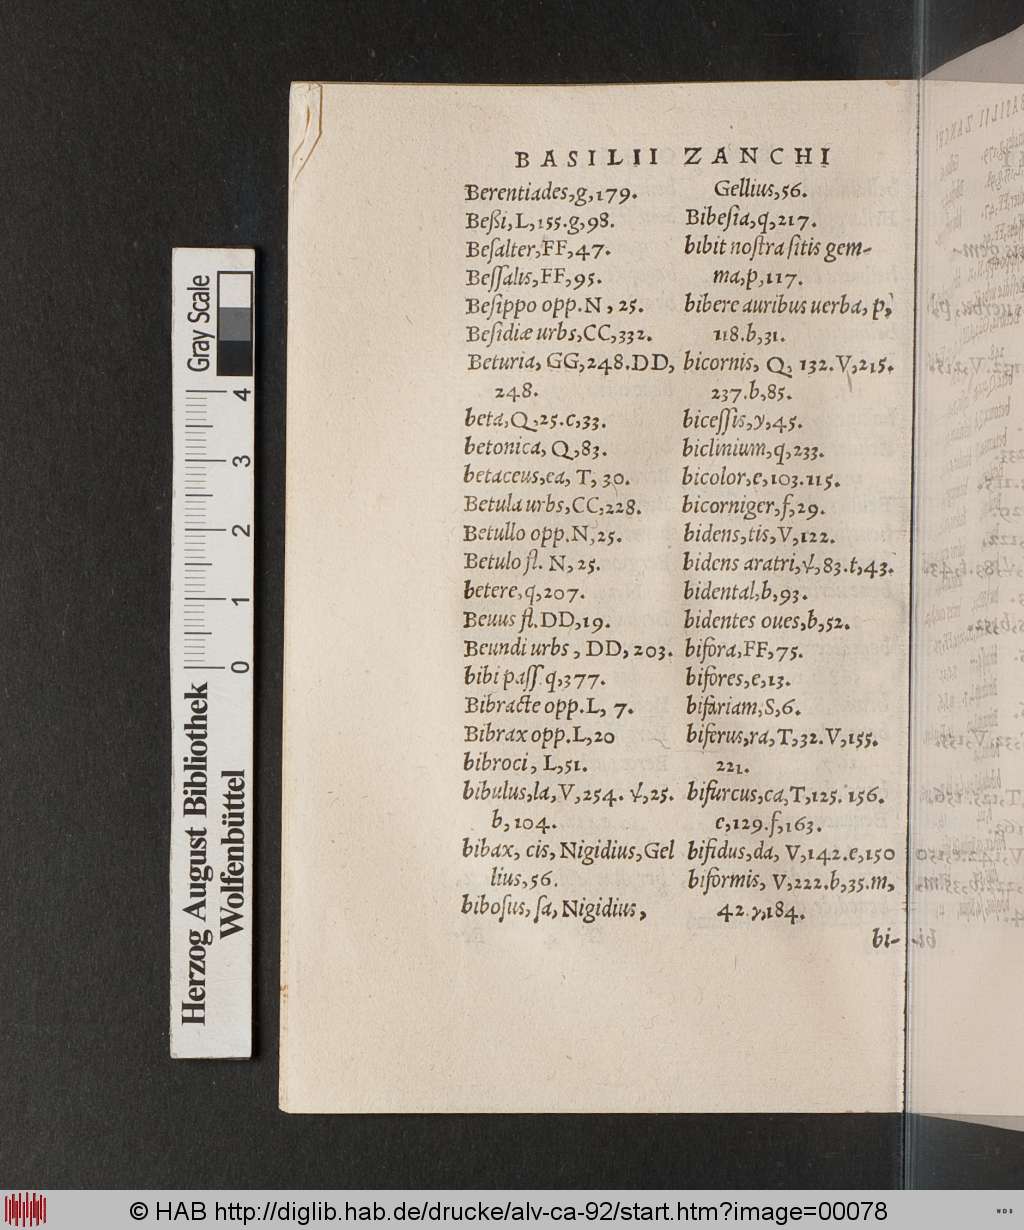 BASILII ZANCHI
Berentiades,g,179.
Beßi,L,155.g,98.
Beſalter,FF,47.
Beſſalis,FF,95.
Beſippo opp.N,25.
Beſidiæ urbs,CC,332.
Beturia, GG,248.DD,
248.
beta,Q,25.c,33.
betonica, Q,83.
betaceus,ea, T, 30.
Betula urbs,CC,228.
Betullo opp.N,25.
Betulo fl. N,25.
betere,q,207.
Beuus fl.DD,19.
Beundi urbs, DD,203.
bibi paſſ.q,377.
Bibracte opp.L, 7.
Bibrax opp.L,20
bibroci, L,51.
bibulus,la,V,254. ψ,25.
b,104.
bibax, cis, Nigidius,Gel
lius,56.
biboſus, ſa, Nigidius,
Gellius,56.
Bibeſia,q,217.
bibit noſtra ſitis gem-
ma,p,117.
bibere auribus uerba, p,
118.b,31.
bicornis, Q, 132.V,215.
237.b,85.
biceſſis,y,45.
biclinium,q,233.
bicolor,e,103.115.
bicorniger,f,29.
bidens,tis,V,122.
bidens aratri,ψ,83.t,43.
bidental,b,93.
bidentes oues,b,52.
bifora,FF,75.
bifores,e,13.
bifariam,S,6.
biferus,ra,T,32.V,155.
221.
bifurcus,ca,T,125. 156.
e,129.f,163.
bifidus,da, V,142.e,150
biformis, V,222.b,35.m,
42.y,184.
bi-
Gray Scale
4
3
2
1
0
Herzog August Bibliothek
Wolfenbüttel
© HAB http://diglib.hab.de/drucke/alv-ca-92/start.htm?image=00078